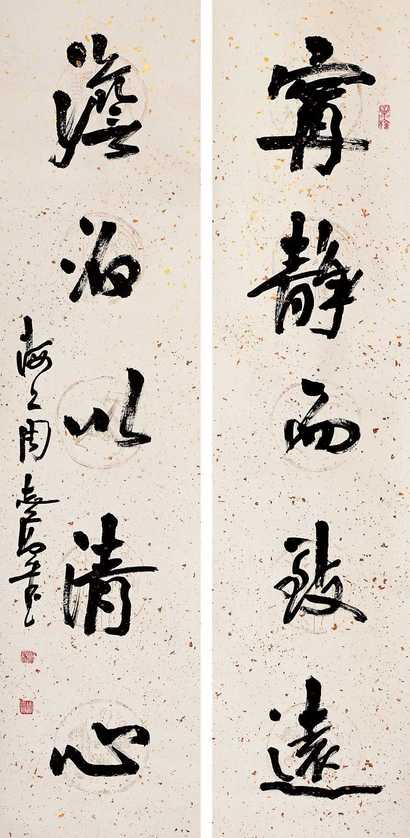 甯静而致遠
澹泊以清心
海上周志高書